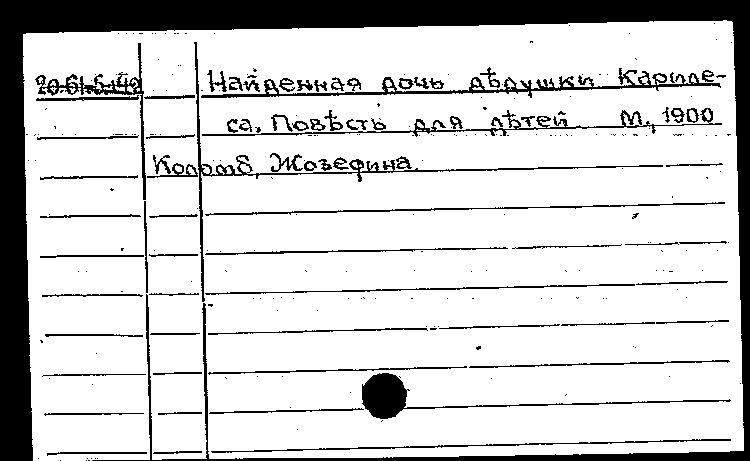 20.61.5.149 Найденная дочь дѣдушки Кариле-
са. Повѣсть для дѣтей М., 1900
Коломб, Жозефина.